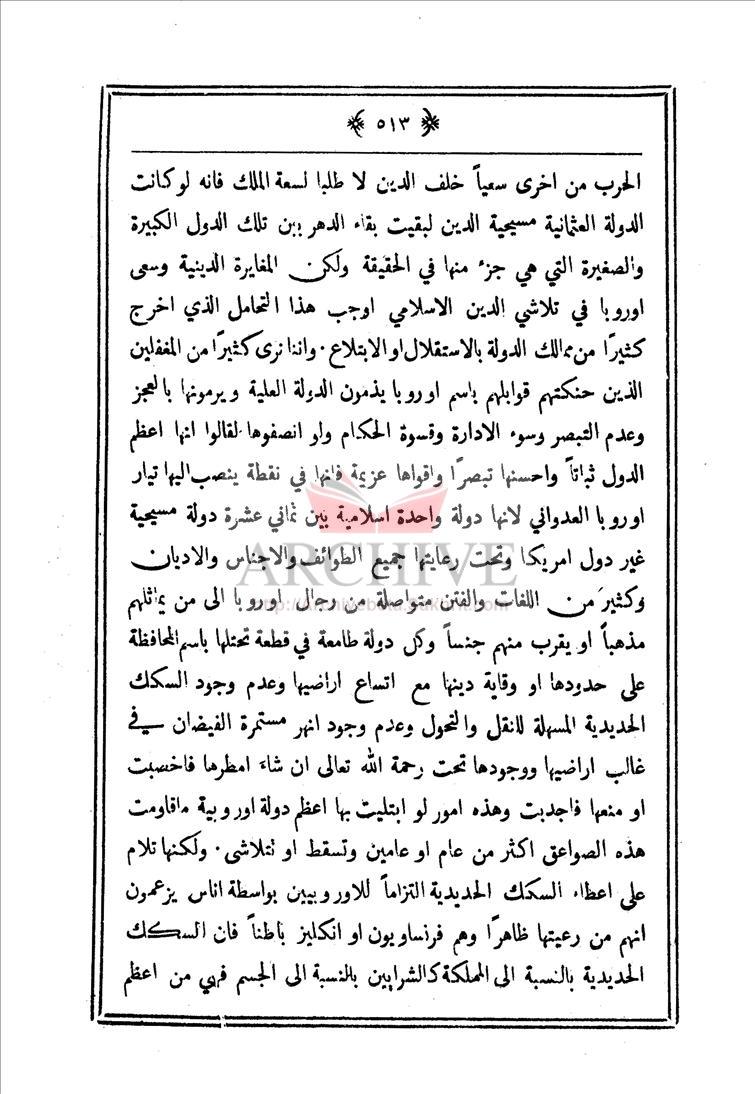 ٥١٣
الحرب من اخرى سعياً خلف الدين لا طلبا لسعة الملك فانه لو كانت
الدولة العثمانية مسيحية الدين لبقيت بقاء الدهر بين تلك الدول الكبيرة
والصغيرة التي هي جزء منها في الحقيقة ولكن المغايرة الدينية وسعى
اوروبا في تلاشي الدين الاسلامي اوجب هذا التحامل الذي اخرج
كثيرًا من ممالك الدولة بالاستقلال او الابتلاع · واننا نرى كثيرًا من المغفلين
الذين حنكتهم قوابلهم باسم اوروبا يذمون الدولة العلية ويرمونها بالعجز
وعدم التبصر وسوء الادارة وقسوة الحكام ولو انصفوها لقالوا انها اعظم
الدول ثباتاً واحسنها تبصرًا واقواها عزيمة فانها في نقطة ينصب اليها تيار
اوروبا العدواني لانها دولة واحدة اسلامية بين ثماني عشرة دولة مسيحية
غير دول امريكا وتحت رعايتها جميع الطوائف والاجناس والاديان
وكثير من اللغات والفتن متواصلة من رجال اوروبا الى من يماثلهم
مذهباً او يقرب منهم جنساً وكل دولة طامعة في قطعة تحتلها باسم المحافظة
على حدودها او وقاية دينها مع اتساع اراضيها وعدم وجود السكك
الحديدية المسهلة للنقل والتحول وعدم وجود انهر مستمرة الفيضان في
غالب اراضيها ووجودها تحت رحمة الله تعالى ان شاء امطرها فاخصبت
او منعها فاجدبت وهذه امور لو ابتليت بها اعظم دولة اوروبية ماقاومت
هذه الصواعق اكثر من عام او عامين وتسقط او تتلاشى · ولكنها تلام
على اعطاء السكك الحديدية التزاماً للاوروبيين بواسطة اناس يزعمون
انهم من رعيتها ظاهرًا وهم فرنساويون او انكليز باطناً فان السكك
الحديدية بالنسبة الى المملكة كالشرايين بالنسبة الى الجسم فهي من اعظم
ARCHIVE